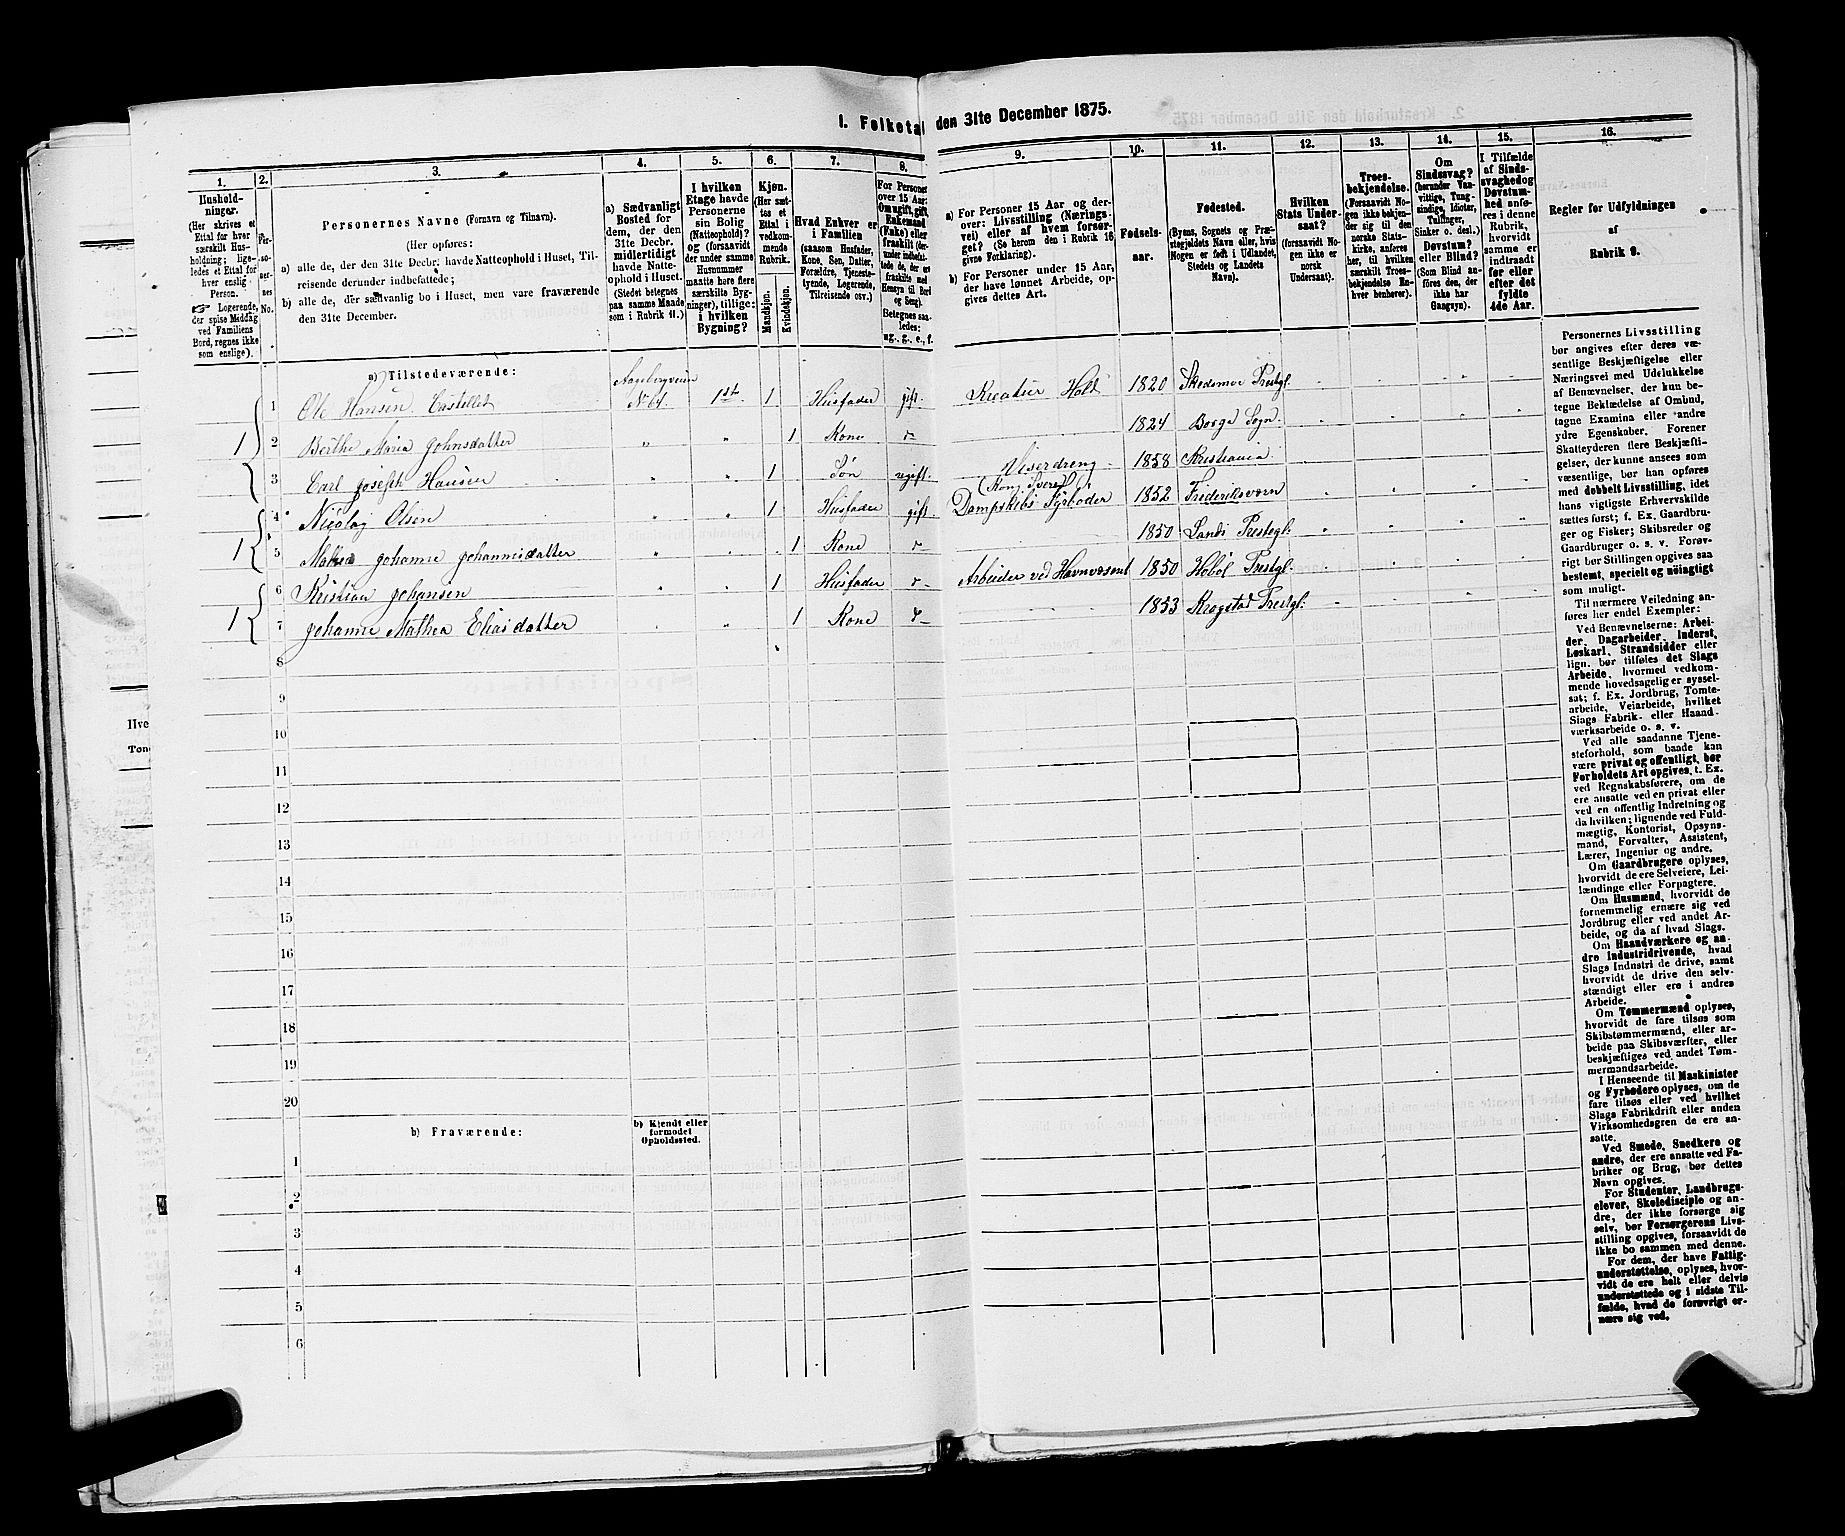 I. Folketal den 31te December 1875.
1. 2. 3. 4. 5. 6. 7. 8. 9. 10. 11. 12. 13. 14. 15. 16.
Hushold-
ninger.
(Her skrives et
Ettal for hver
særskilt Hus-
holdning; lige-
ledes et Ettal for
hver enslig
Person.
Logerende,
der spise Middag
ved Familiens
Bord, regnes ikke
som enslige).
Per-
so-
ner-
nes
No.
Personernes Navne (Fornavn og Tilnavn).
(Her opføres:
a) alle de, der den 31te Decbr. havde Natteophold i Huset, Til-
reisende derunder indbefattede;
b) alle de, der sædvanlig bo i Huset, men vare fraværende
den 31te December.
a) Sædvanligt
Bosted for
dem, der den
31te Decbr.
midlertidigt
havde Natte-
ophold i Huset.
(Stedet betegnes
paa samme Maade
som i Rubrik 11.)
I hvilken
Etage havde
Personerne
sin Bolig
(Natteophold)?
og (forsaavidt
der under samme
Husnummer
maatte høre flere
særskilte Byg-
ninger), tillige:
i hvilken
Bygning?
Kjøn.
(Her sæt-
tes et
Ettal i
vedkom-
mende
Rubrik.
Mandkjøn.
Kvindekjøn.
Hvad Enhver er
i Familien
(saasom Husfader,
Kone, Søn, Datter,
Forældre, Tjeneste-
tyende, Logerende,
Tilreisende osv.)
For Personer
over 15 Aar:
Om ugift, gift,
Enkemand
(Enke) eller
fraskilt (der-
under indbefat-
tede de, der ere
fraskilte med
Hensyn til Bord
og Seng).
Betegnes saa-
ledes:
ug., g., e., f.
a) For Personer 15 Aar og der-
over: Livsstilling (Nærings-
vei) eller af hvem forsør-
get? (Se herom den i Rubrik 16
givne Forklaring).
b) For Personer under 15 Aar,
der have lønnet Arbeide, op-
gives dettes Art.
Fødsels-
aar.
Fødested.
(Byens, Sognets og Præ-
stegjeldets Navn eller, hvis
Nogen er født i Udlandet,
Stedets og Landets
Navn).
Hvilken
Stats Under-
saat?
(forsaavidt No-
gen ikke er
norsk
Undersaat).
Troes-
bekjendelse.
(Forsaavidt No-
gen ikke bekjen-
der sig til den
norske Stats-
kirke, anføres
her, til hvilken
særskilt Troes-
bekjendelse En-
hver henhører).
Om
Sindssvag?
(herunder Van-
vittige, Tung-
sindige, Idioter,
Tullinger,
Sinker o. desl.)
Døvstum?
eller Blind?
(Som Blind an-
føres den, der
ikke har
Gangsyn).
I Tilfælde
af Sinds-
svaghed og
Døvstum-
hed anfø-
res i denne
Rubrik,
hvorvidt
samme er
indtraadt
før eller
efter det
fyldte
4de Aar.
Regler for Udfyldningen
af
Rubrik 9.
a) Tilstedeværende:
1 Ole Hansen Castellet No 61. 1ste 1 Husfader gift. Kreatur Hold 1820 Skedsmoe Prestgl.
1 2 Berthe Maria Johnsdatter „ „ 1 Kone 1824 Borge Sogn.
3 Carl Josefth Hansen „ „ 1 Søn ugift. Viserdreng 1858 Kristiania
(Kong Svere)
4 Nicolaj Olsen „ „ 1 Husfader gift. Dampskibs Fyrbøder 1852 Frideriksværn
1 5 Mathea Johanne Johannisdatter „ „ 1 Kone 1850 Landi Prestegl.
6 Kristian Johansen 1 Husfader Arbeider ved Havnvæsent 1850 Hobøl Prestgl.
1 7 Johanne Mathea Eliasdatter „ „ 1 Kone 1853 Krogstad Prestgl.
8
9
10
11
12
13
14
15
16
17
18
19
20
b) Fraværende:
b) Kjendt eller
formodet
Opholdssted.
1
2
3
4
5
6
Personernes Livsstilling
bør angives efter deres væ-
sentlige Beskjæftigelse eller
Næringsvei med Udelukkelse
af Benævnelser, der kun be-
tegne Beklædelse af Ombud,
tagne Examina eller andre
ydre Egenskaber. Forener
Skatteyderen flere Beskjæfti-
gelser, der kunne ansees som
væsentlige, bør han opføres
med dobbelt Livsstilling, idet
hans vigtigste Erhvervskilde
sættes først; f. Ex. Gaardbru-
ger og Fisker; Skibsreder og
Gaardbruger o. s. v. Forøv-
rigt bør Stillingen opgives saa
bestemt, specielt og nöiagtigt
som muligt.
Til nærmere Veiledning an-
føres her endel Exempler:
Ved Benævnelserne: Arbei-
der, Dagarbeider, Inderst,
Løskarl, Strandsidder eller
lign. bør tilføies det Slags
Arbeide, hvormed vedkom-
mende hovedsagelig er syssel-
sat; f. Ex. Jordbrug, Tomte-
arbeide, Veiarbeide, hvilket
Slags Fabrik- eller Haand-
værksarbeide o. s. v.
Ved alle saadanne Tjene-
steforhold, som baade kan
være privat og offentligt, bør
Forholdets Art opgives, t. Ex.
ved Regnskabsførere, om de
ere ansatte ved en privat eller
ved en offentlig Indretning og
da hvilken; lignende ved Fuld-
mægtig, Kontorist, Opsyns-
mand, Forvalter, Assistent,
Lærer, Ingeniør og andre.
Om Gaardbrugere oplyses,
hvorvidt de ere Selveiere, Lei-
lændinge eller Forpagtere.
Om Husmænd, hvorvidt de
fornemmelig ernære sig ved
Jordbrug eller ved andet Ar-
beide, og da af hvad Slags.
Om Haandværkere og an-
dre Industridrivende, hvad
Slags Industri de drive, samt
hvorvidt de drive den selv-
stændigt eller ere i andres
Arbeide.
Om Tømmermænd oplyses,
hvorvidt de fare tilsøs som
Skibstømmermænd, eller ar-
beide paa Skibsværfter, eller
beskjæftiges ved andet Tøm-
mermandsarbeide.
I Henseende til Maskinister
og Fyrbødere oplyses, om de
fare tilsøs eller ved hvilket
Slags Fabrikdrift eller anden
Virksomhedsgren de ere an-
satte.
Ved Smede, Snedkere og
andre, der ere ansatte ved Fa-
briker og Brug, bør dettes
Navn opgives.
For Studenter, Landbrugs-
elever, Skoledisciple og an-
dre, der ikke forsørge sig
selv, bør Forsørgerens Livs-
stilling opgives, forsaavidt de
ikke bo sammen med denne.
For dem, der have Fattig-
understøttelse, oplyses, hvor-
vidt de ere helt eller delvis
understøttede og i sidste Til-
fælde, hvad de forøvrigt er-
nære sig ved.